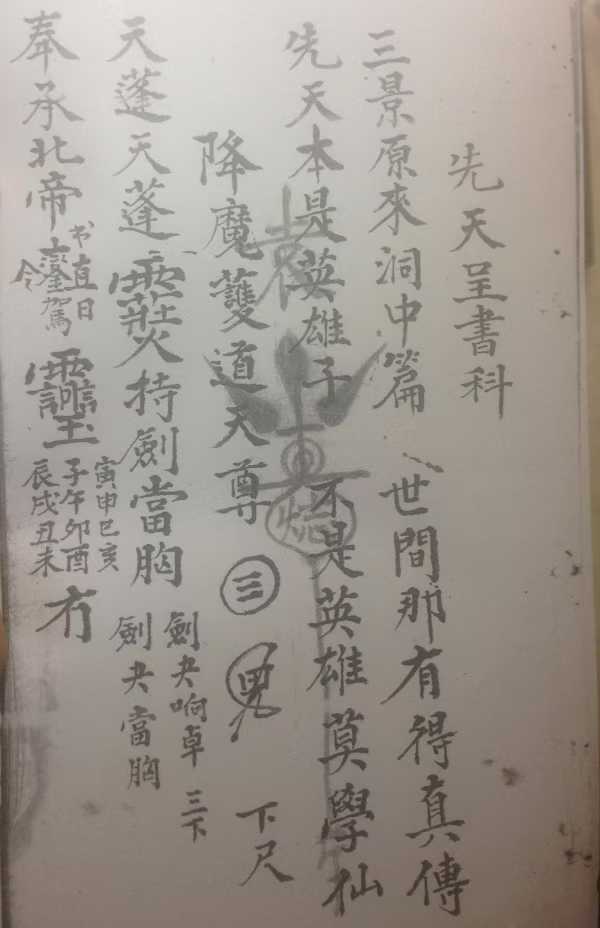 先天呈書科
三景原來洞中篇 世間那有得真傳
先天本是英雄子 不是英雄莫學仙
降魔護道天尊 三 下尺
天蓬天蓬 持劍當胸 劍夬响卓三下 劍夬當胸
奉承北帝 书直日 令 駕 寅申巳亥 子午卯酉 辰戌丑未